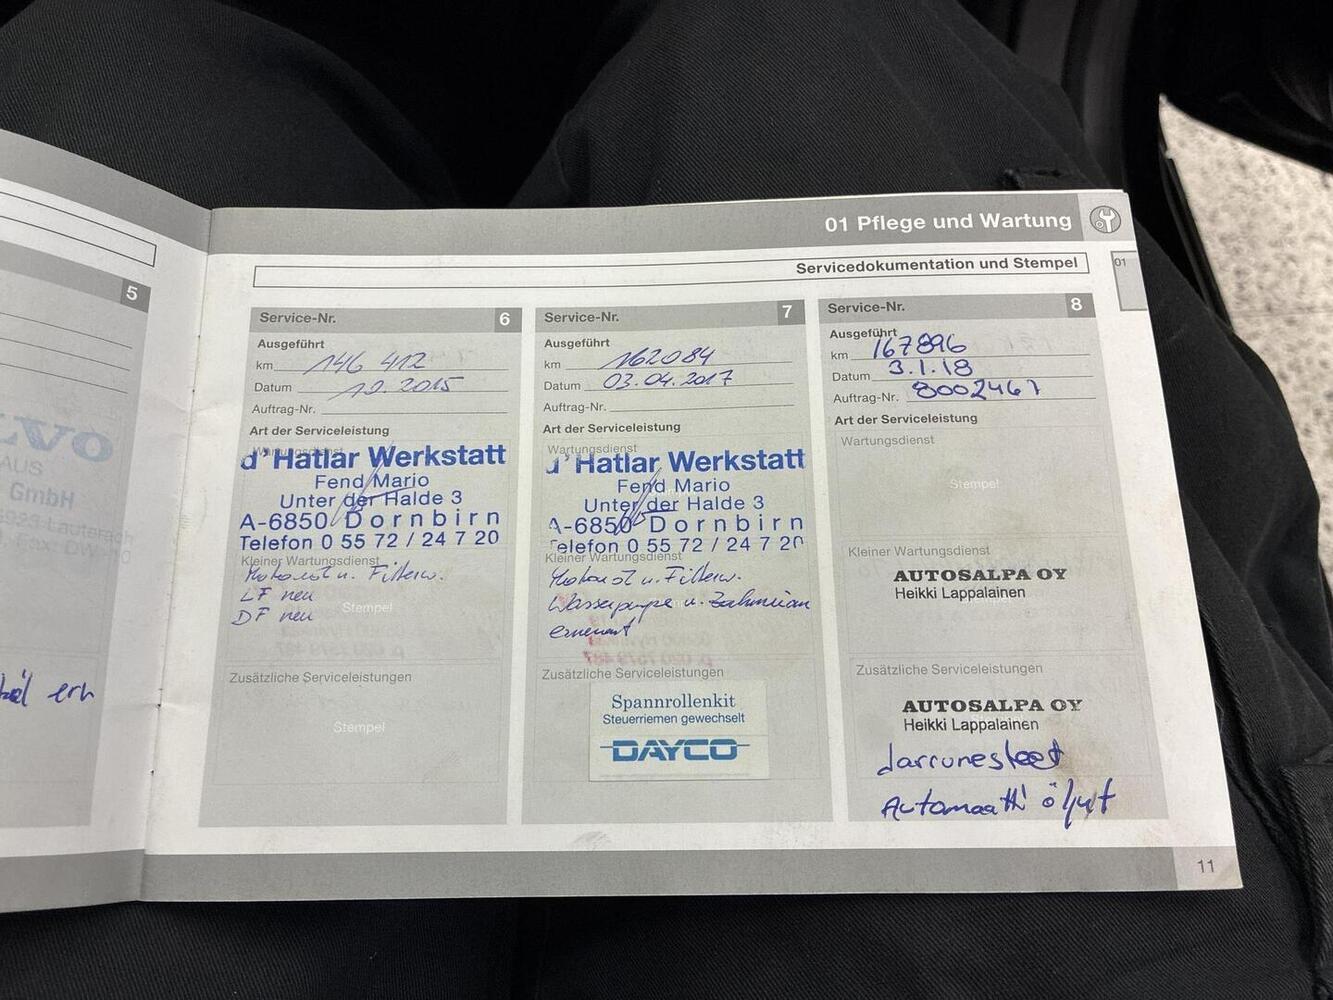 01 Pflege und Wartung
Servicedokumentation und Stempel
01
5
VO
AUS
GmbH
6923 Lauterach
Service-Nr. 6
Ausgeführt
km 146 412
Datum 10.2015
Auftrag-Nr.
Art der Serviceleistung
Wartungsdienst
d'Hatlar Werkstatt
Fend Mario
Unter der Halde 3
A-6850 Dornbirn
Telefon 0 55 72 / 24 7 20
Kleiner Wartungsdienst
Motoröl u. Filterw.
LF neu
Stempel
DF neu
Zusätzliche Serviceleistungen
Stempel
Service-Nr. 7
Ausgeführt
km 162084
Datum 03.04.2017
Auftrag-Nr.
Art der Serviceleistung
Wartungsdienst
d'Hatlar Werkstatt
Fend Mario
Unter der Halde 3
A-6850 Dornbirn
Telefon 0 55 72 / 24 7 20
Kleiner Wartungsdienst
Motoröl u. Filterw.
Wasserpumpe u. Zahnriemen
erneuert
Zusätzliche Serviceleistungen
Spannrollenkit
Steuerriemen gewechselt
DAYCO
Service-Nr. 8
Ausgeführt
km 167896
Datum 3.1.18
Auftrag-Nr. 8002467
Art der Serviceleistung
Wartungsdienst
Stempel
Kleiner Wartungsdienst
AUTOSALPA OY
Heikki Lappalainen
Zusätzliche Serviceleistungen
AUTOSALPA OY
Heikki Lappalainen
Jarrunesteet
Automaatti öljyt
11